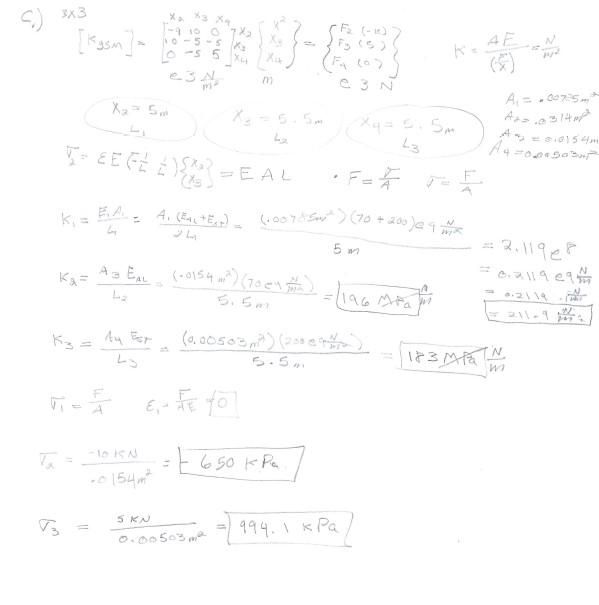 5.) 3x3
x₂ x₃ x₄
[K₉sm] = [-9 10 0; 10 -5 -5; 0 -5 5] x₂ x₃ x₄ {x² x₃ x₄} = {F₂ (-10) F₃ (5) F₄ (0)}
e3 N/m² m e3 N
K = AE/(x) = N/m²
A₁ = .00785m²
A₂ = .0314m²
A₃ = 0.0154m
A₄ = 0.00503m²
x₂ = 5m L₁
x₃ = 5.5m L₂
x₄ = 5.5m L₃
σ₂ = εE(-1/L 1/L){x₂ x₃} = E A L · F = σ/A σ = F/A
K₁ = E₁A₁/L₁ = A₁(E_AL + E_ST)/2L₁ = (.00785m²)(70+200)e9 N/m² / 5m = 2.119e8
= 0.2119 e9 N/m
= 0.2119 · N/m
= 211.9 N/m²
K₂ = A3 E_AL/L₂ = (.0154 m²)(70e9 N/m²)/5.5m = 196 MPa N/m
K₃ = A₄ E_ST/L₃ = (0.00503m²)(200e9 N/m²)/5.5m = 183 MPa N/m
σ₁ = F/A ε₁ = F/AE = 0
σ₂ = -10 KN/.0154m² = -650 KPa
σ₃ = 5KN/0.00503m² = 994.1 KPa